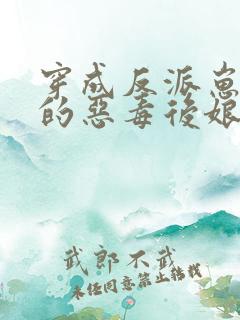 穿成反派崽
的惡毒後娘
武郎不武
未经同意禁止转载